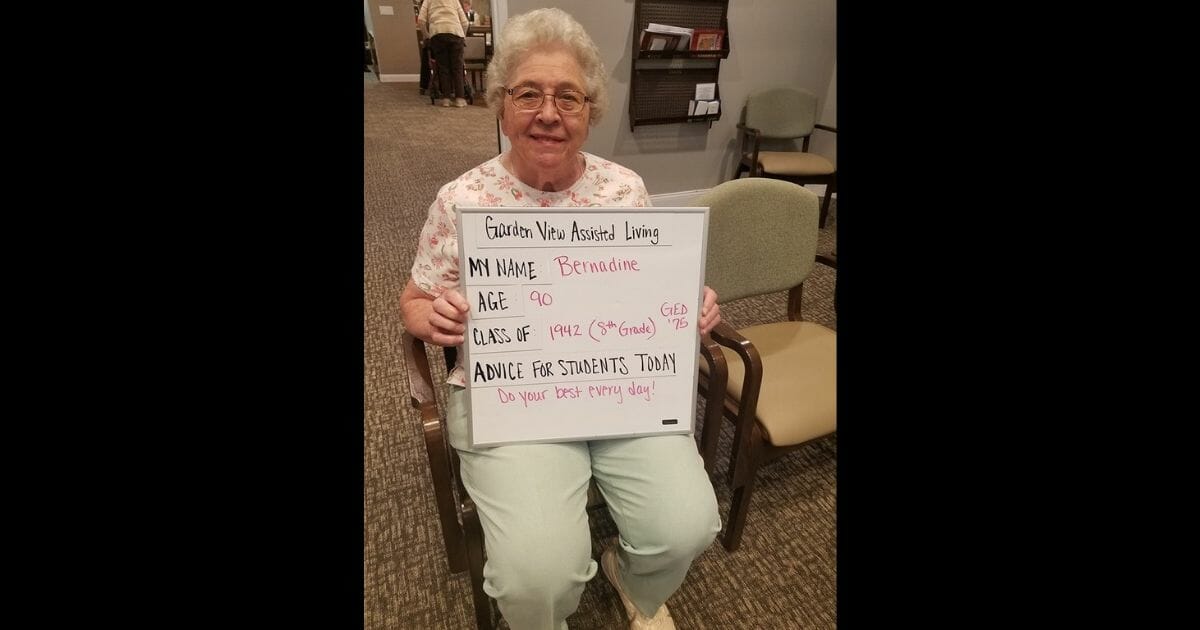 Garden View Assisted Living
MY NAME: Bernadine
AGE: 90
CLASS OF: 1942 (8th Grade) GED '75
ADVICE FOR STUDENTS TODAY
Do your best every day!